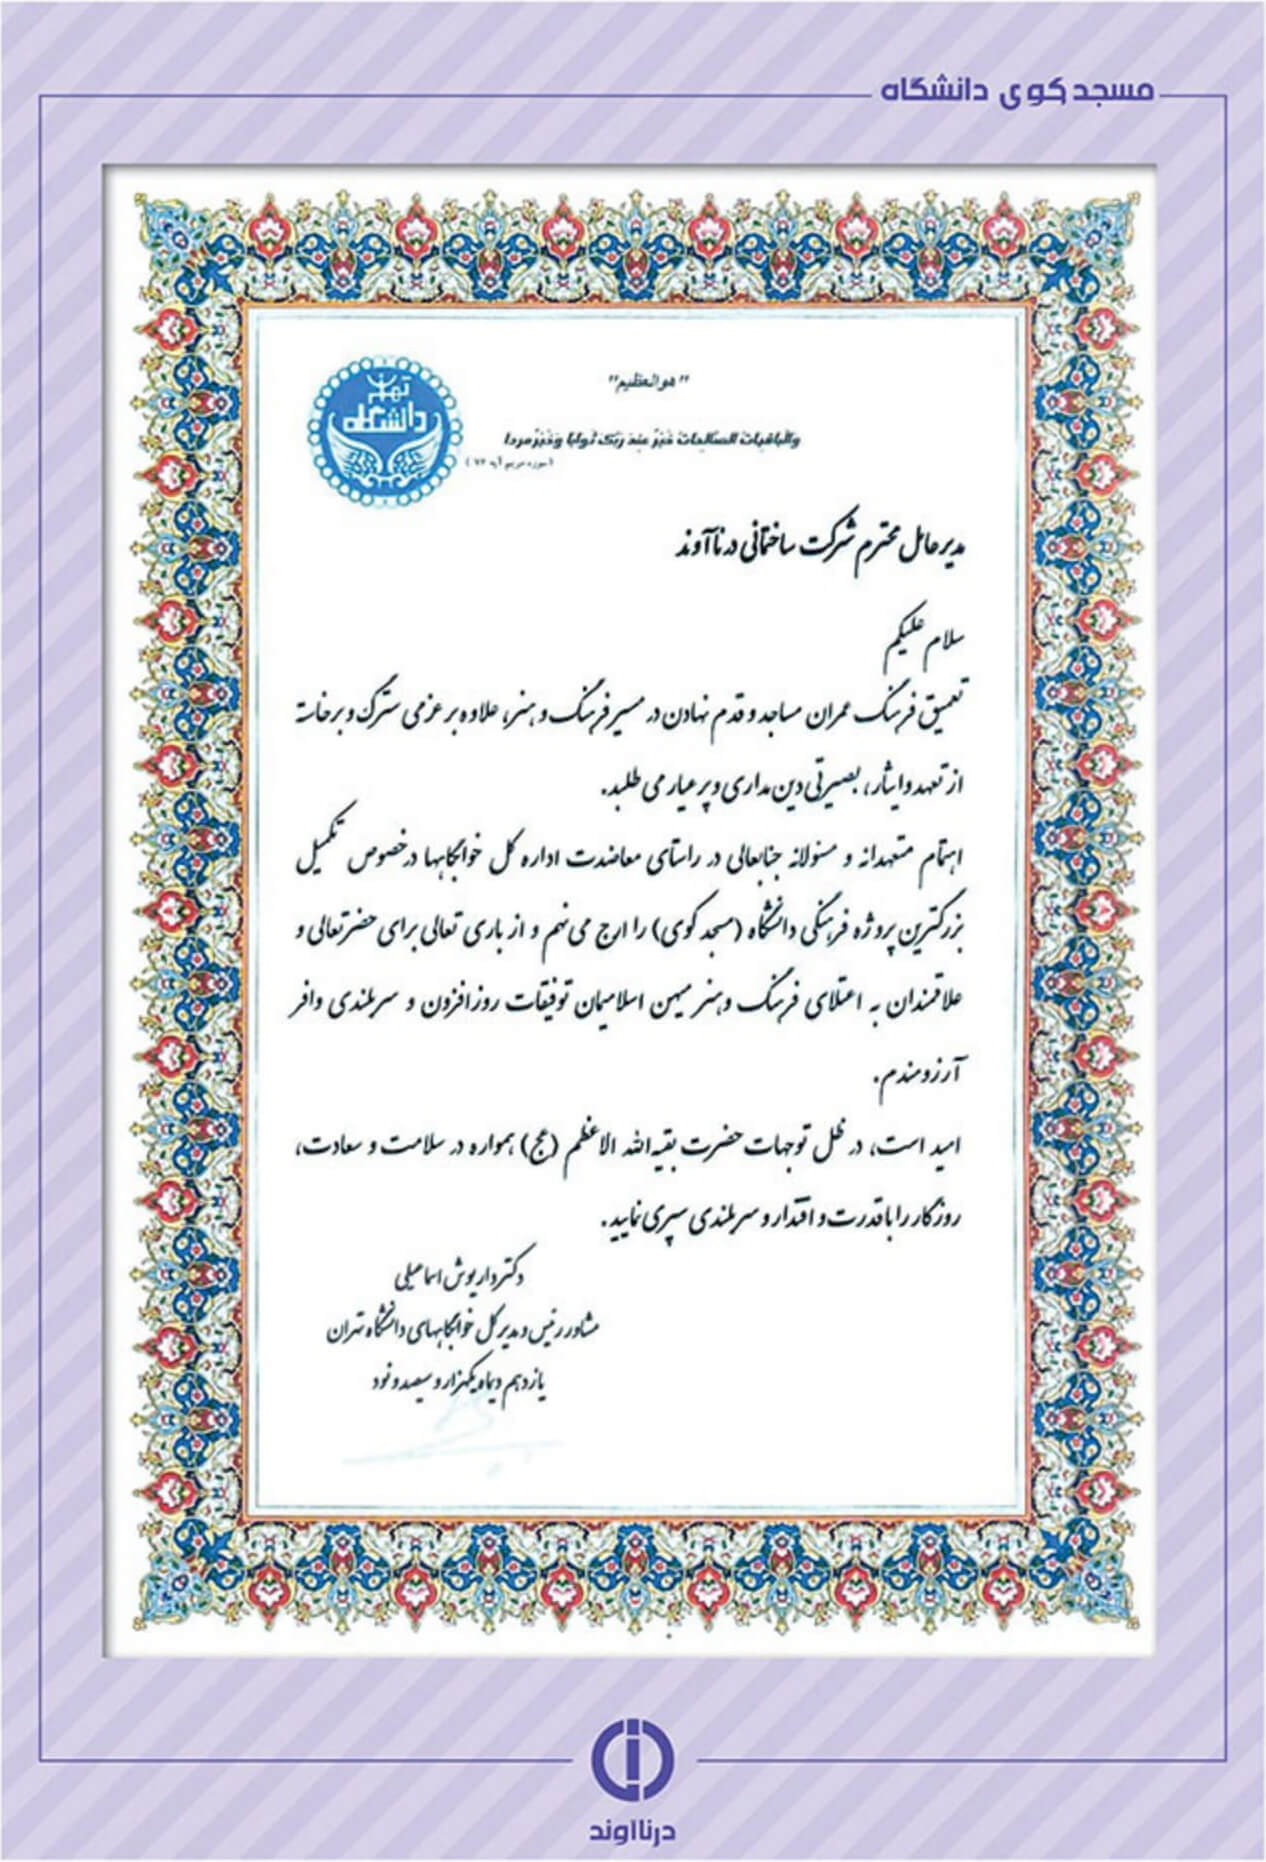 مسجد کوی دانشگاه
"هوالعظیم"
والباقیات الصالحات خیر عند ربک ثوابا و خیر مردا
(سوره مریم آیه ۷۶)
دانشگاه تهران
مدیر عامل محترم شرکت ساختمانی درنا آوند
سلام علیکم
تعمیق فرهنگ عمران مساجد و قدم نهادن در مسیر فرهنگ و هنر، علاوه بر عزمی سترگ و برخاسته
از تعهد و ایثار، بصیرتی دین مداری و پر عیار می طلبد.
اهتمام متعهدانه و مسئولانه جنابعالی در راستای معاضدت اداره کل خوابگاهها در خصوص تکمیل
بزرگترین پروژه فرهنگی دانشگاه (مسجد کوی) را ارج می نهم و از باری تعالی برای حضرتعالی و
علاقمندان به اعتلای فرهنگ و هنر میهن اسلامیمان توفیقات روز افزون و سربلندی وافر
آرزومندم.
امید است، در ظل توجهات حضرت بقیه الله الاعظم (عج) همواره در سلامت و سعادت،
روزگار را با قدرت و اقتدار و سربلندی سپری نمایید.
دکتر داریوش اسماعیلی
مشاور رئیس و مدیر کل خوابگاههای دانشگاه تهران
یازدهم دیماه یکهزار و سیصد و نود
درناآوند